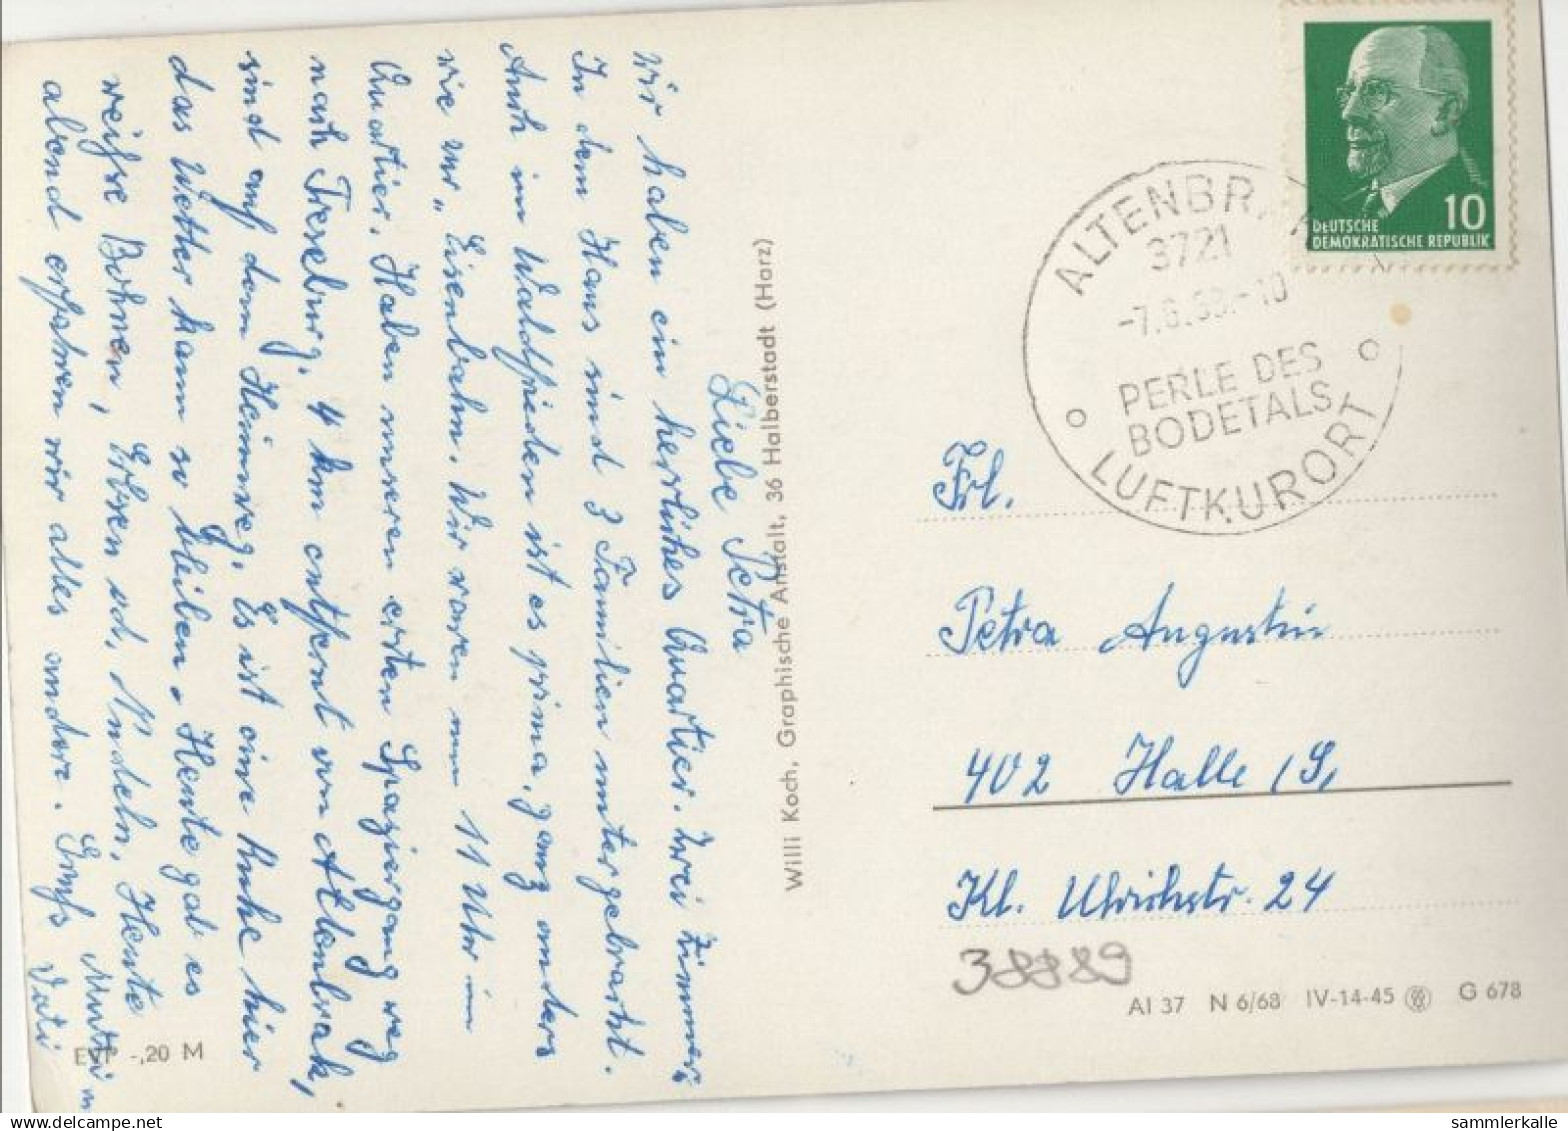 Liebe Petra
Wir haben ein herrliches Quartier. Zwei Zimmer,
In dem Haus sind 3 Familien untergebracht.
Auch im Waldfrieden ist es prima, ganz anders
wie im „Eisenbahn. Wir waren um 11 Uhr im
Quartier. Haben unseren ersten Spaziergang weg
nach Treseburg, 4 km entfernt von Altenbrak,
sind auf dem Heimweg. Es ist eine Ruhe hier
das Wetter kann so bleiben. Heute gab es
weiße Bohnen, Erbsen od. Nudeln. Heute
abend erfahren wir alles andere. Gruß Mutti
Vati
EVP -,20 M
Willi Koch, Graphische Anstalt, 36 Halberstadt (Harz)
DEUTSCHE
DEMOKRATISCHE REPUBLIK
10
ALTENBR
3721
PERLE DES
BODETALS
LUFTKURORT
Frl.
Petra Augustin
402 Halle (S,
Kl. Ulrichstr. 24
38889
AI 37 N 6/68 IV-14-45 G 678
www.delcampe.net
sammlerkalle